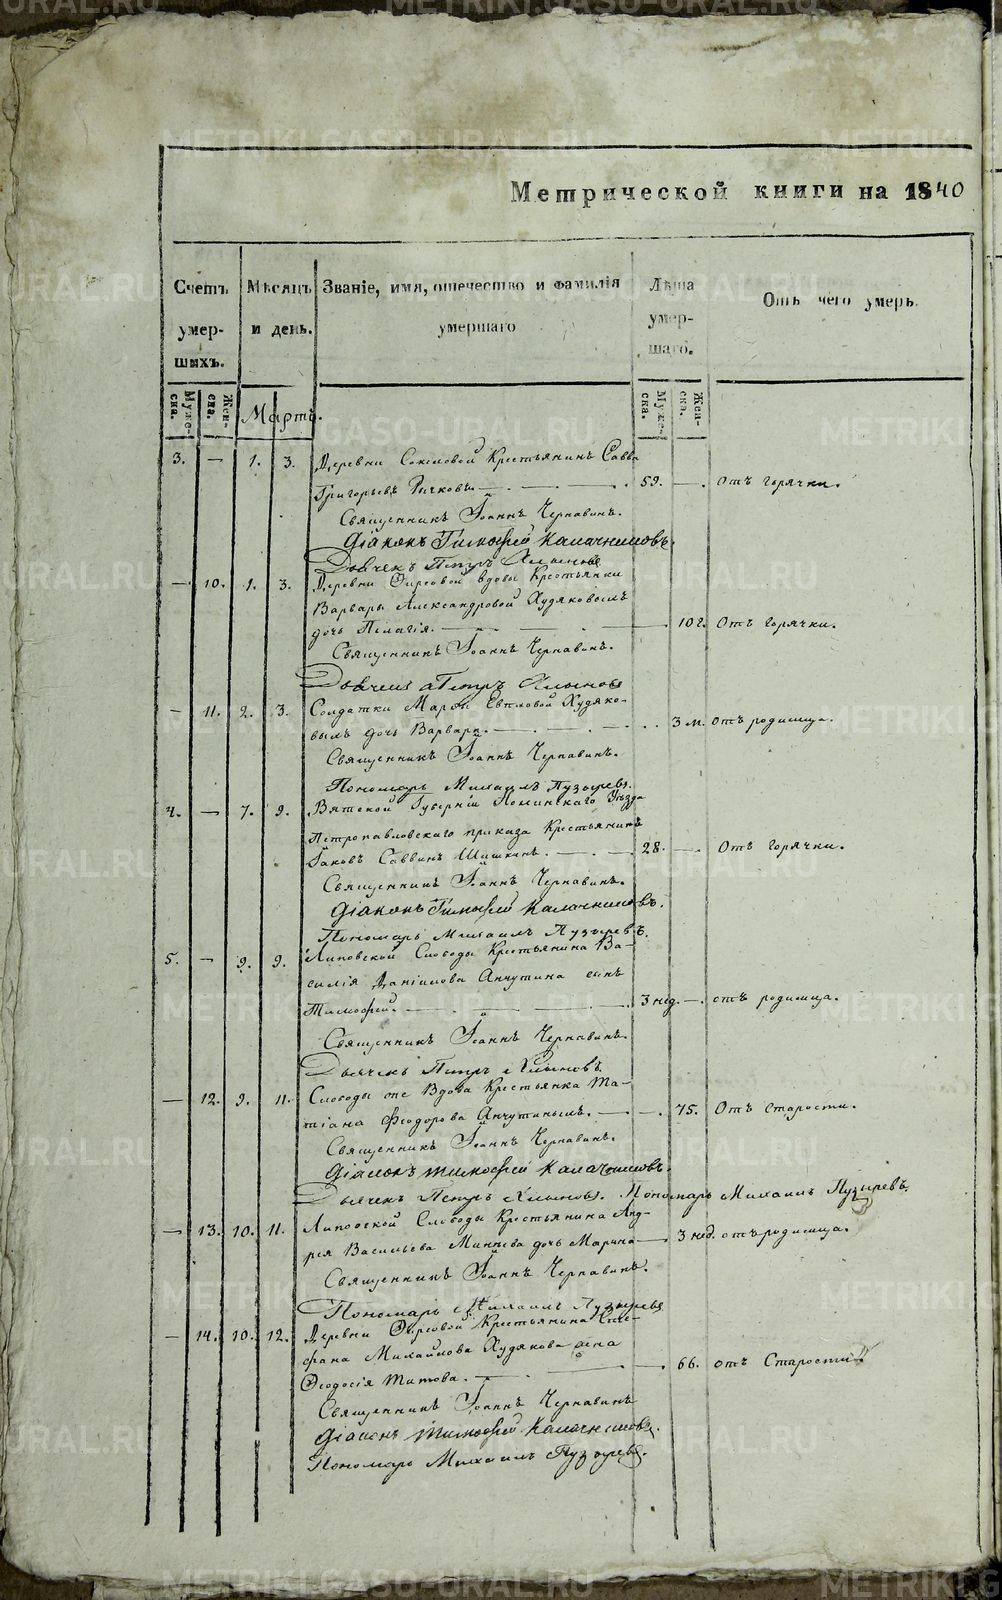 Метрической книги на 1840
Счетъ умершихъ.
Мѣсяцъ и день.
Званіе, имя, отечество и фамилія умершаго
Лѣта умершаго.
Отъ чего умеръ.
Муже-ска.
Жен-ска.
Мартъ.
Муже-ска.
Жен-ска.
3. — 1. 3. Деревни Крестьянинъ Савва
Григорьевъ Ричковъ — 59. — Отъ горячки.
Священникъ Іоаннъ Чернавинъ.
Діаконъ Тимофей Калачниковъ.
Дьячекъ Петръ Хлыновъ
— 10. 1. 3. Деревни вдовы Крестьянки
Варвары Александровой Худяковыхъ
дочь Пелагія. — 10 г. Отъ горячки.
Священникъ Іоаннъ Чернавинъ.
Дьячекъ Петръ Хлыновъ
— 11. 2. 3. Солдатки Марѳы Евпловой Худяко-
выхъ дочь Варвара. — 3 м. отъ родимца.
Священникъ Іоаннъ Чернавинъ.
Пономарь Михаилъ Пузыревъ.
4. — 7. 9. Вятской Губерніи Уѣзда
Петропавловскаго приказа Крестьянинъ
Іаковъ Саввинъ Шишкинъ. — 28. — Отъ горячки.
Священникъ Іоаннъ Чернавинъ.
Діаконъ Тимофей Калачниковъ.
Пономарь Михаилъ Пузыревъ.
5. — 9. 9. Липовской Слободы Крестьянина Ва-
силія Даніилова Анчутина сынъ
Тимофей. — 3 нед. — отъ родимца.
Священникъ Іоаннъ Чернавинъ.
Дьячекъ Петръ Хлыновъ.
— 12. 9. 11. Слободы оне Вдова Крестьянка Та-
тіана Феодорова Анчутиныхъ. — 75. Отъ старости.
Священникъ Іоаннъ Чернавинъ.
Діаконъ Тимофей Калачниковъ.
Дьячекъ Петръ Хлыновъ. Пономарь Михаилъ Пузыревъ.
— 13. 10. 11. Липовской Слободы Крестьянина Анд-
рея Васильева Минѣева дочь Марина — 3 нед. отъ родимца.
Священникъ Іоаннъ Чернавинъ.
Пономарь Михаилъ Пузыревъ
— 14. 10. 12. Деревни Крестьянина Сте-
фана Михайлова Худякова жена
Ѳеодосія Титова. — 66. отъ Старости.
Священникъ Іоаннъ Чернавинъ
Діаконъ Тимофей Калачниковъ.
Пономарь Михаилъ Пузыревъ.
METRIKI.GASO-URAL.RU